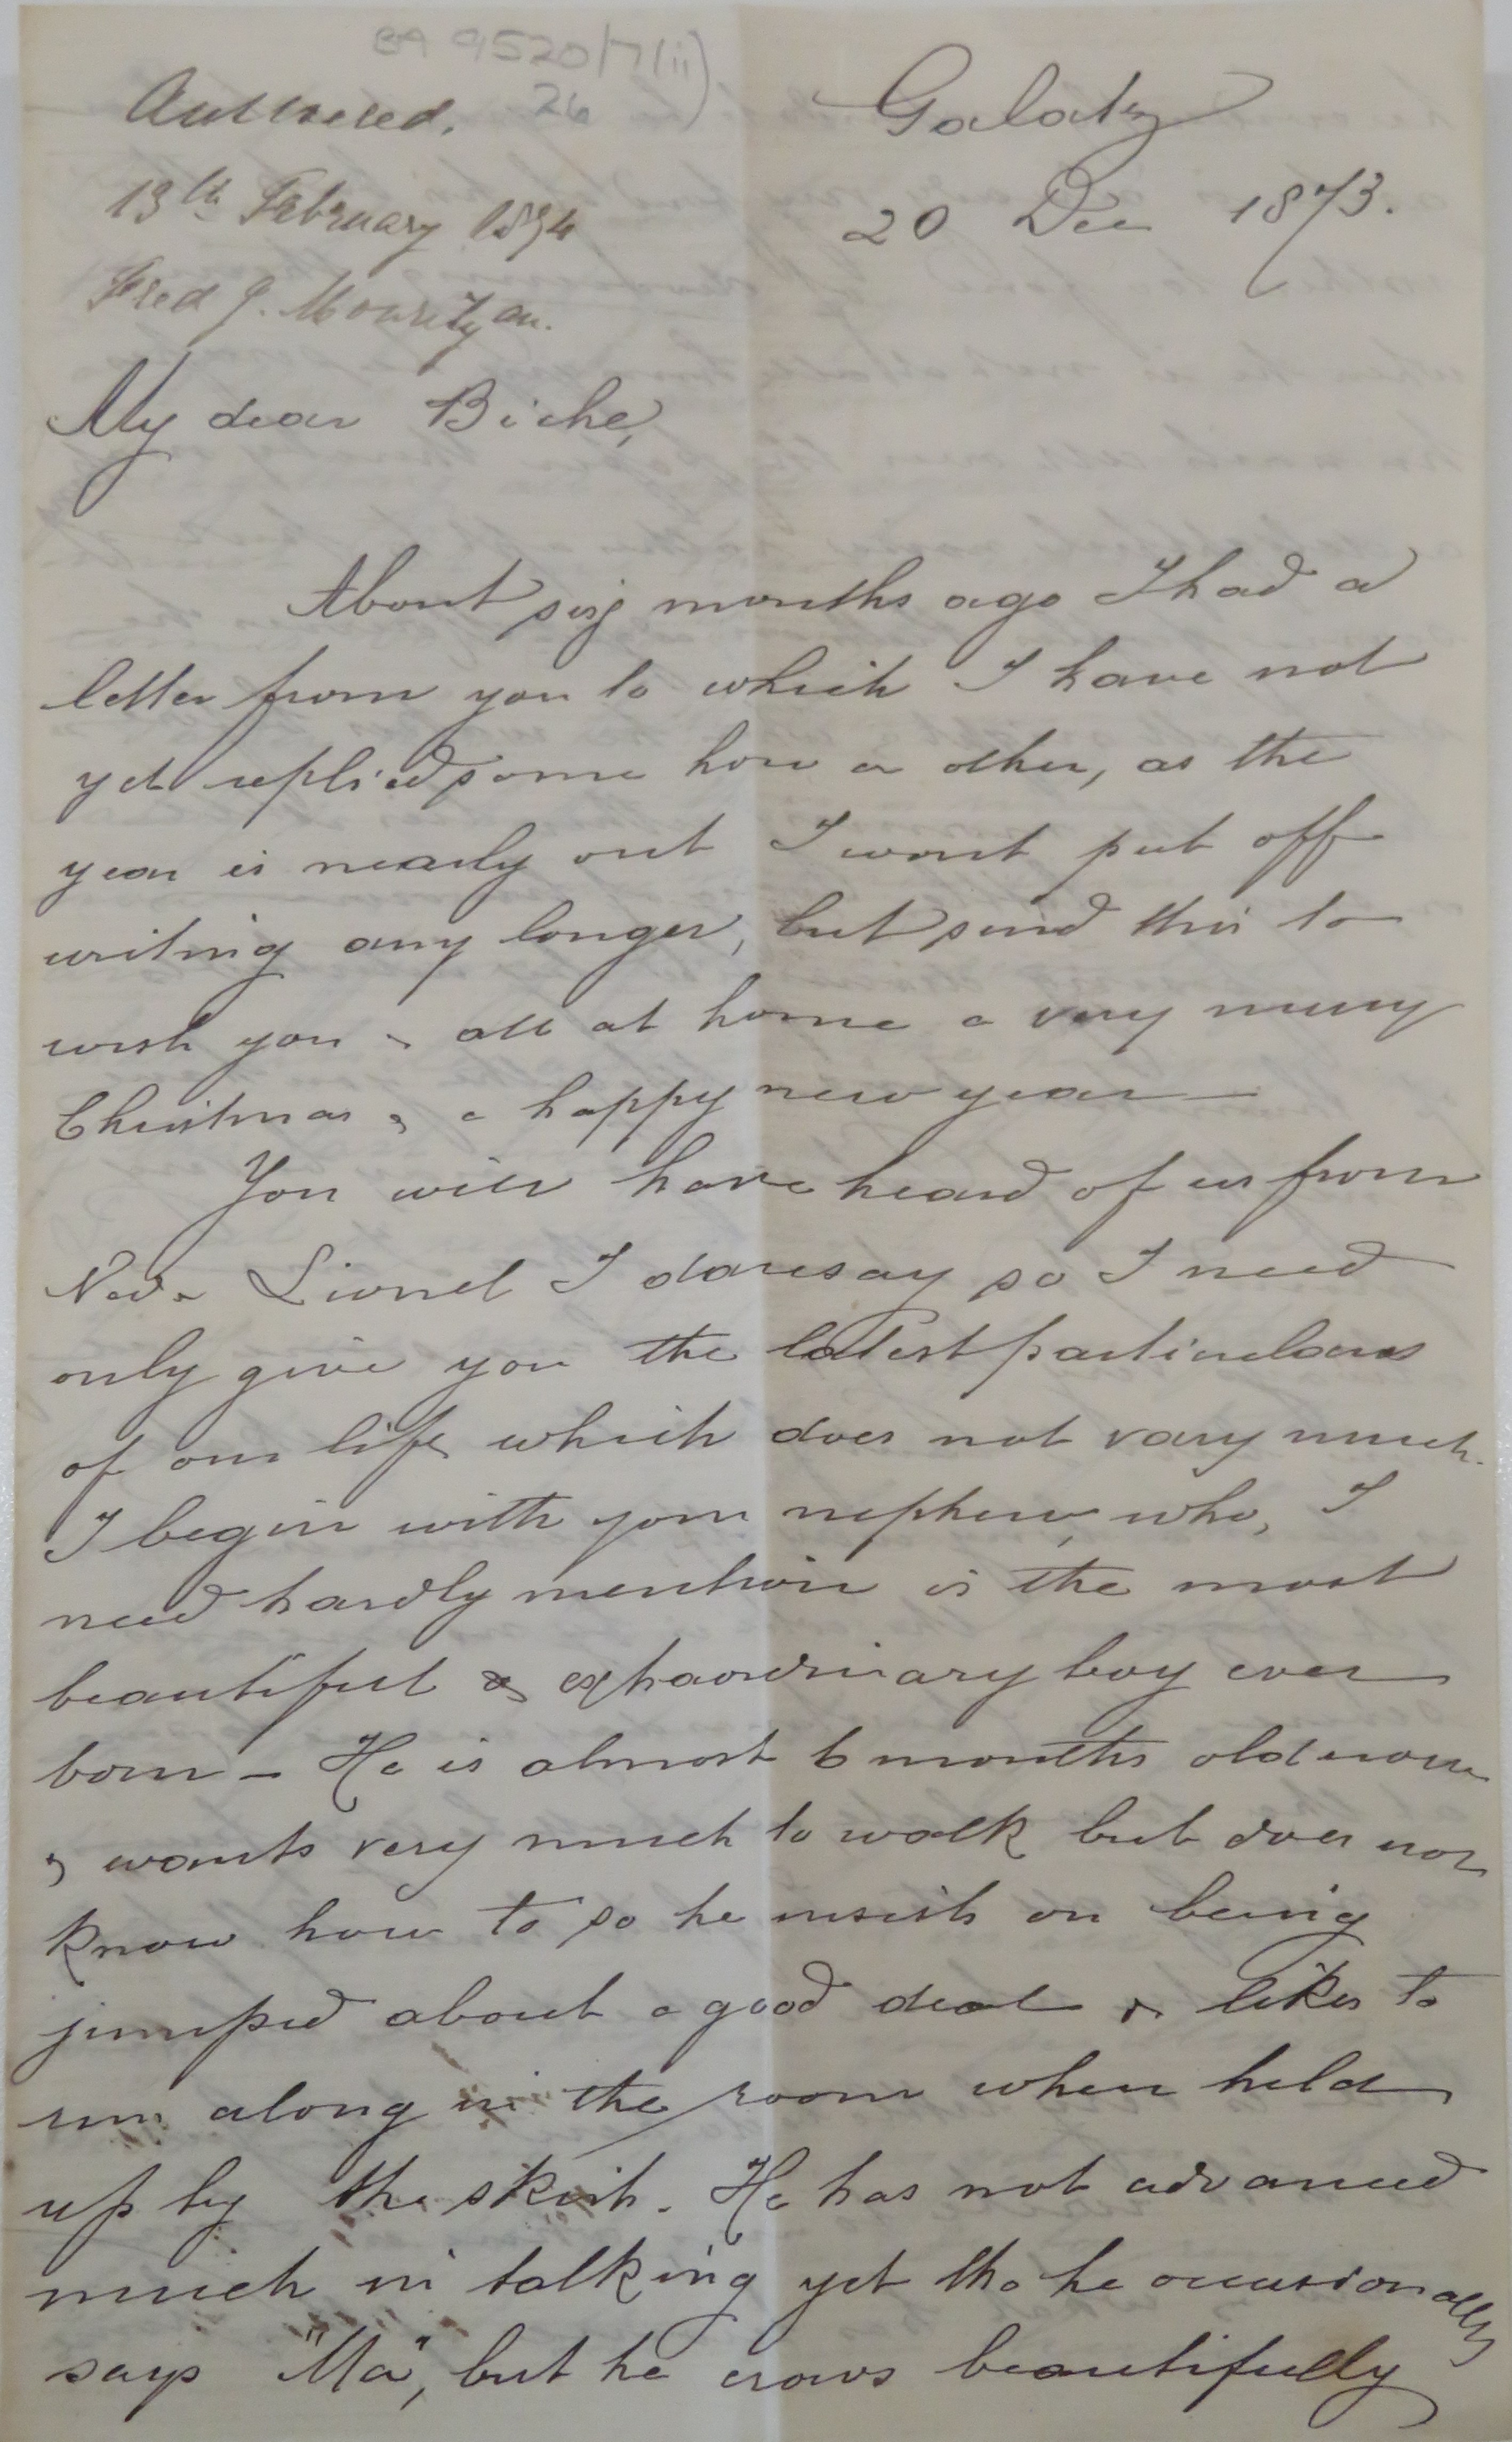 BA 9520/7(ii)
26
Answered.
13th February 1874
Fred J. Mouritzen.
Galatz
20 Dec 1873.
My dear Biche,
About six months ago I had a
letter from you to which I have not
yet replied some how or other, as the
year is nearly out I wont put off
writing any longer, but send this to
wish you & all at home a very merry
Christmas & a happy new year—
You will have heard of us from
Ned & Lionel I daresay so I need
only give you the latest particulars
of our life which does not vary much.
I begin with your nephew who, I
need hardly mention is the most
beautiful & extraordinary boy ever
born — He is almost 6 months old now
& wants very much to walk but does not
know how to so he insists on being
jumped about a good deal & likes to
run along in the room when held
up by the skirts. He has not advanced
much in talking yet tho he occasionally
says "Ma", but he crows beautifully